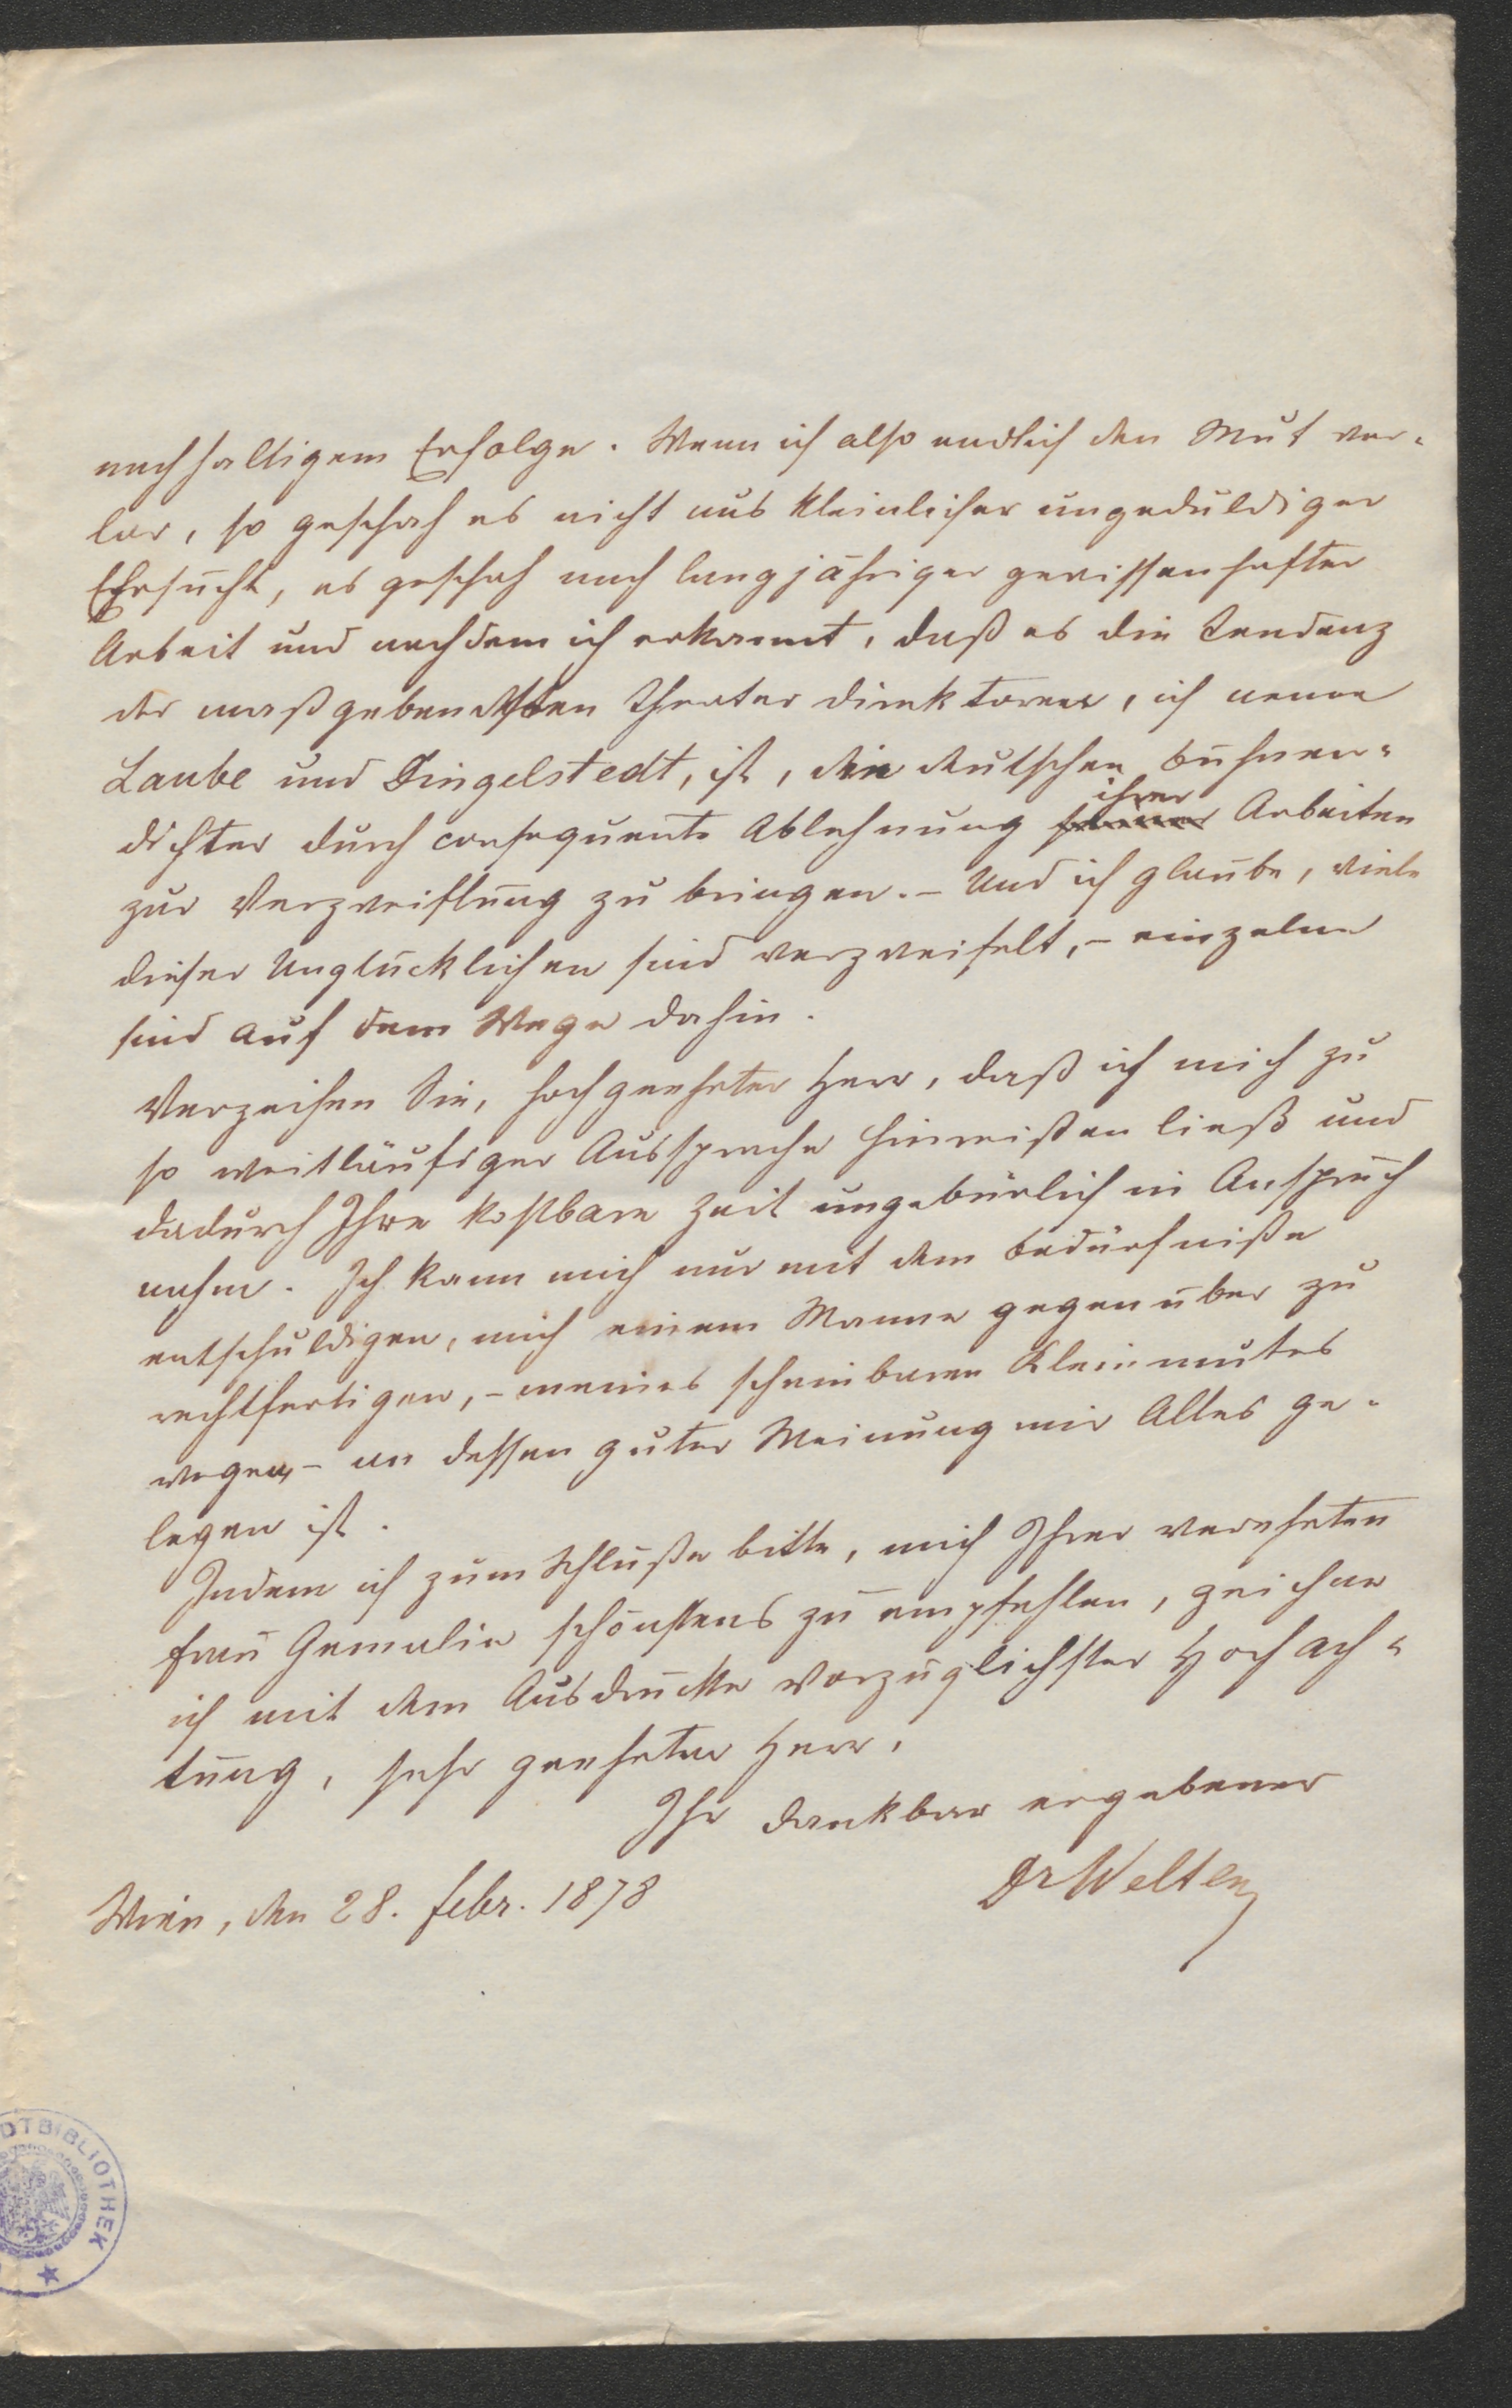 nachhaltigem Erfolge. Wenn ich also endlich den Mut ver-
lor, so geschah es nicht aus kleinlicher ungeduldiger
Ehrsucht, es geschah nach langjähriger gewissenhafter
Arbeit und nachdem ich erkannt, daß es die Tendenz
der maßgebendsten Theater Direktoren, ich nenne
Laube und Dingelstedt, ist, die deutschen Bühnen-
dichter durch consequente Ablehnung seiner ihrer Arbeiten
zur Verzweiflung zu bringen. – Und ich glaube, viele
dieser Unglücklichen sind verzweifelt, – einzelne
sind auf dem Wege dahin.
Verzeihen Sie, hochgeehrter Herr, daß ich mich zu
so weitläufiger Aussprache hinreißen ließ und
dadurch Ihre kostbare Zeit ungebürlich in Anspruch
nahm. Ich kann mich nur mit dem Bedürfniße
entschuldigen, mich einem Manne gegenüber zu
rechtfertigen, – meines scheinbaren Kleinmutes
wegen, – an dessen guter Meinung mir Alles ge-
legen ist.
Indem ich zum Schluße bitte, mich Ihrer verehrten
Frau Gemalin schönstens zu empfehlen, zeichne
ich mit dem Ausdrucke vorzüglichster Hochach-
tung, sehr geehrter Herr,
Ihr dankbar ergebener
Dr Welten
Wien, den 28. Febr. 1878
DTBIBLIOTHEK